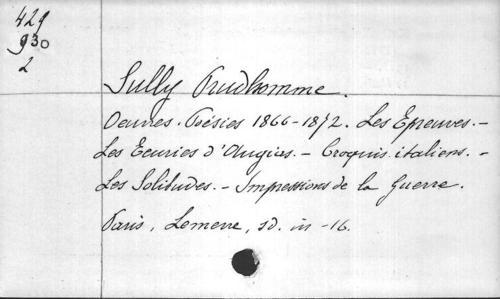 429
930
2
Sully Prudhomme.
Oeuvres. Poésies 1866-1872. Les Epreuves.-
Les Ecuries d'Augias.- Croquis italiens.-
Les Solitudes.- Impressions de la Guerre.
Paris, Lemerre, sd. in-16.